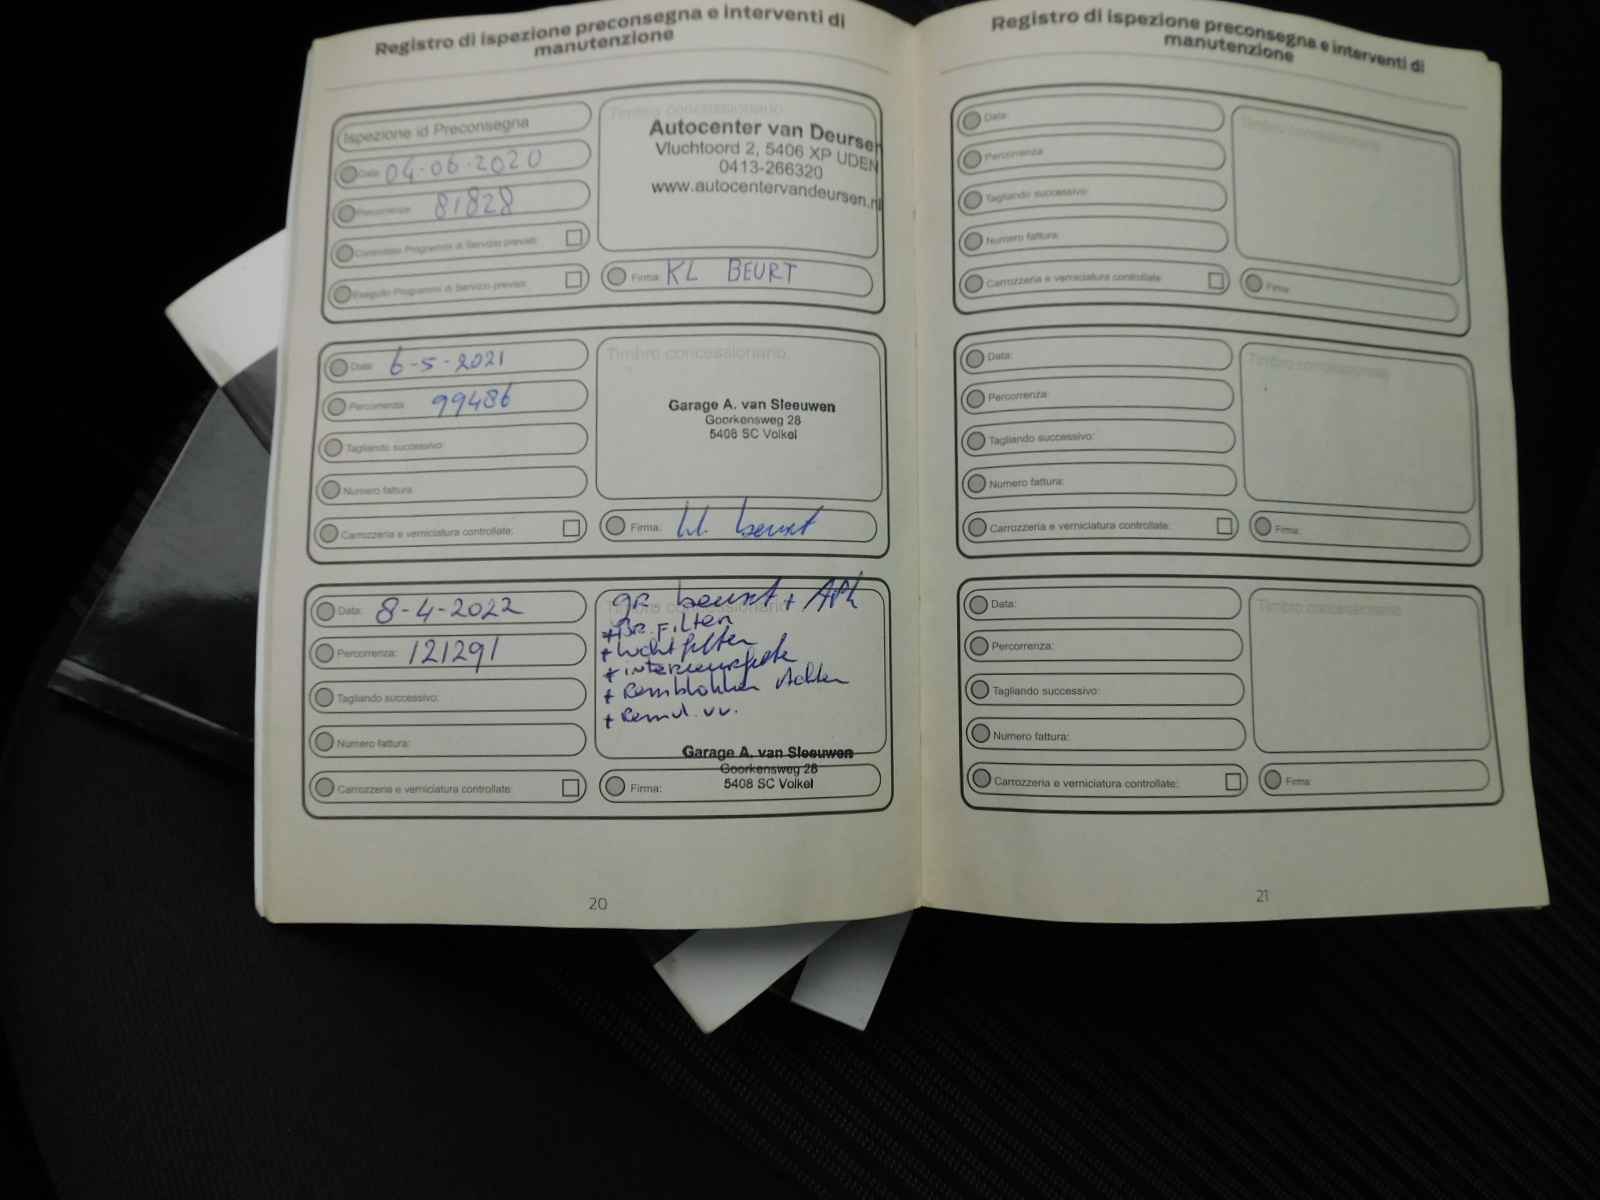 Registro di ispezione preconsegna e interventi di
manutenzione
Ispezione id Preconsegna
Data: 04-06-2020
Percorrenza: 81828
Controllato Programmi di Servizio previsti:
Eseguito Programmi di Servizio previsti:
Timbro concessionario
Autocenter van Deursen
Vluchtoord 2, 5406 XP UDEN
0413-266320
www.autocentervandeursen.nl
Firma: KL BEURT
Data: 6-5-2021
Percorrenza: 99486
Tagliando successivo:
Numero fattura:
Carrozzeria e verniciatura controllate:
Timbro concessionario
Garage A. van Sleeuwen
Goorkensweg 28
5408 SC Volkel
Firma: kl. beurt
Data: 8-4-2022
Percorrenza: 121291
Tagliando successivo:
Numero fattura:
Carrozzeria e verniciatura controllate:
Timbro concessionario
gr beurt + APK
+ Br. Filter
+ Luchtfilter
+ interieurfilter
+ Remblokken Achter
+ Remvl. vv.
Garage A. van Sleeuwen
Goorkensweg 28
5408 SC Volkel
Firma:
20
Registro di ispezione preconsegna e interventi di
manutenzione
Data:
Percorrenza:
Tagliando successivo:
Numero fattura:
Carrozzeria e verniciatura controllate:
Timbro concessionario
Firma:
Data:
Percorrenza:
Tagliando successivo:
Numero fattura:
Carrozzeria e verniciatura controllate:
Timbro concessionario
Firma:
Data:
Percorrenza:
Tagliando successivo:
Numero fattura:
Carrozzeria e verniciatura controllate:
Timbro concessionario
Firma:
21